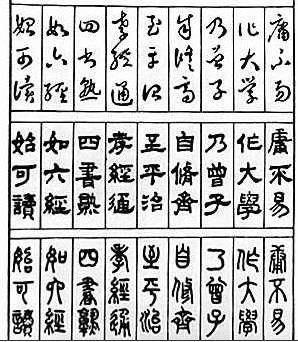 庸不易
作大学
乃曾子
自脩齊
至平治
孝經通
四書熟
如六經
始可讀
庸不易
作大學
乃曾子
自脩齊
至平治
孝經通
四書熟
如六經
始可讀
庸不易
作大學
乃曾子
自脩齊
至平治
孝經通
四書熟
如六經
始可讀